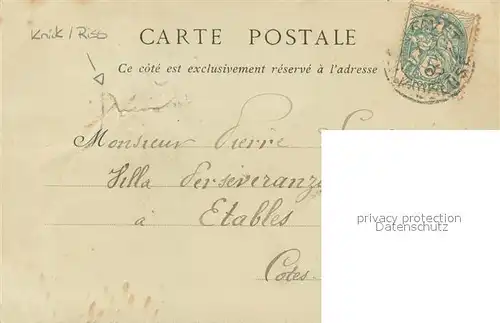 Knick / Riss
CARTE POSTALE
Ce côté est exclusivement réservé à l'adresse
Monsieur Pierre
Villa Perseveranza
à Etables
Cotes
privacy protection
Datenschutz